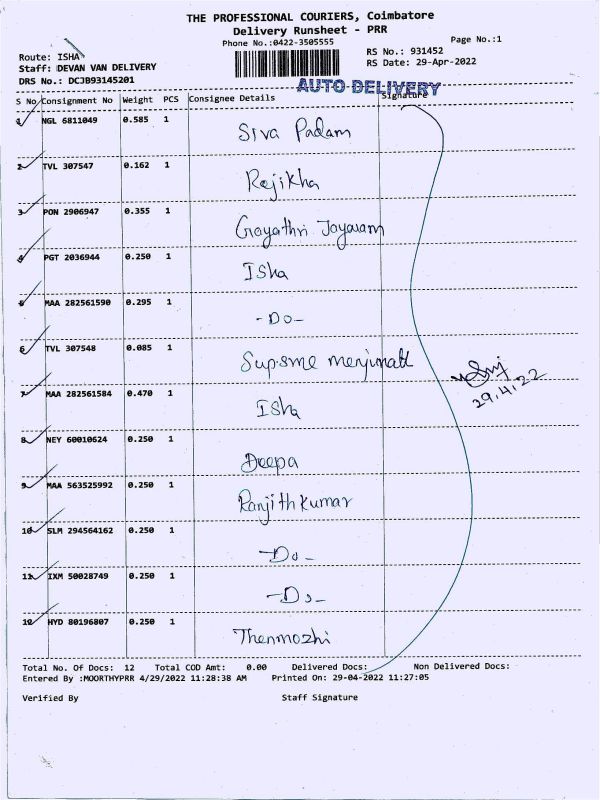 THE PROFESSIONAL COURIERS, Coimbatore
Delivery Runsheet - PRR
Phone No.:0422-3505555
Page No.:1
Route: ISHA
RS No.: 931452
Staff: DEVAN VAN DELIVERY
RS Date: 29-Apr-2022
DRS No.: DCJB93145201
AUTO DELIVERY
S No Consignment No Weight PCS Consignee Details Signature
1 NGL 6811049 0.585 1 Siva Padam
2 TVL 307547 0.162 1 Rejikha
3 PON 2906947 0.355 1 Gayathri Jayaram
4 PGT 2036944 0.250 1 Isha
5 MAA 282561590 0.295 1 -Do-
6 TVL 307548 0.085 1
7 MAA 282561584 0.470 1 Isha
29.4.22
8 NEY 60010624 0.250 1 Deepa
9 MAA 563525992 0.250 1 Ranjith Kumar
10 SLM 294564162 0.250 1 -Do-
11 IXM 50028749 0.250 1 -Do-
12 HYD 80196807 0.250 1 Thenmozhi
Total No. Of Docs: 12 Total COD Amt: 0.00 Delivered Docs: Non Delivered Docs:
Entered By :MOORTHYPRR 4/29/2022 11:28:38 AM Printed On: 29-04-2022 11:27:05
Verified By Staff Signature